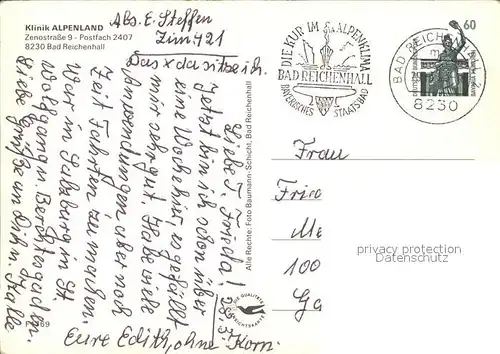 Klinik ALPENLAND
Zenostraße 9 - Postfach 2407
8230 Bad Reichenhall
Abs. E. Steffen
Zim 421
Das x da sitze ich.
Liebe T. Frieda!
Jetzt bin ich schon über
eine Woche hier, es gefällt
mir sehr gut. Habe viele
Anwendungen aber noch
Zeit Fahrten zu machen.
War in Salzburg in St.
Wolfgang u. Berchtesgaden.
Liebe Grüße an Dich u. Kalle
Eure Edith, ohne Kom
Alle Rechte: Foto Baumann-Schicht, Bad Reichenhall
DIE KUR IM ALPENKLIMA
BAD REICHENHALL
BAYERISCHES STAATSBAD
BAD REICHENHALL 2
8230
60
Frau
Frie
Me
100
Ga
privacy protection
Datenschutz
DIE QUALITÄTS
ANSICHTSKARTE